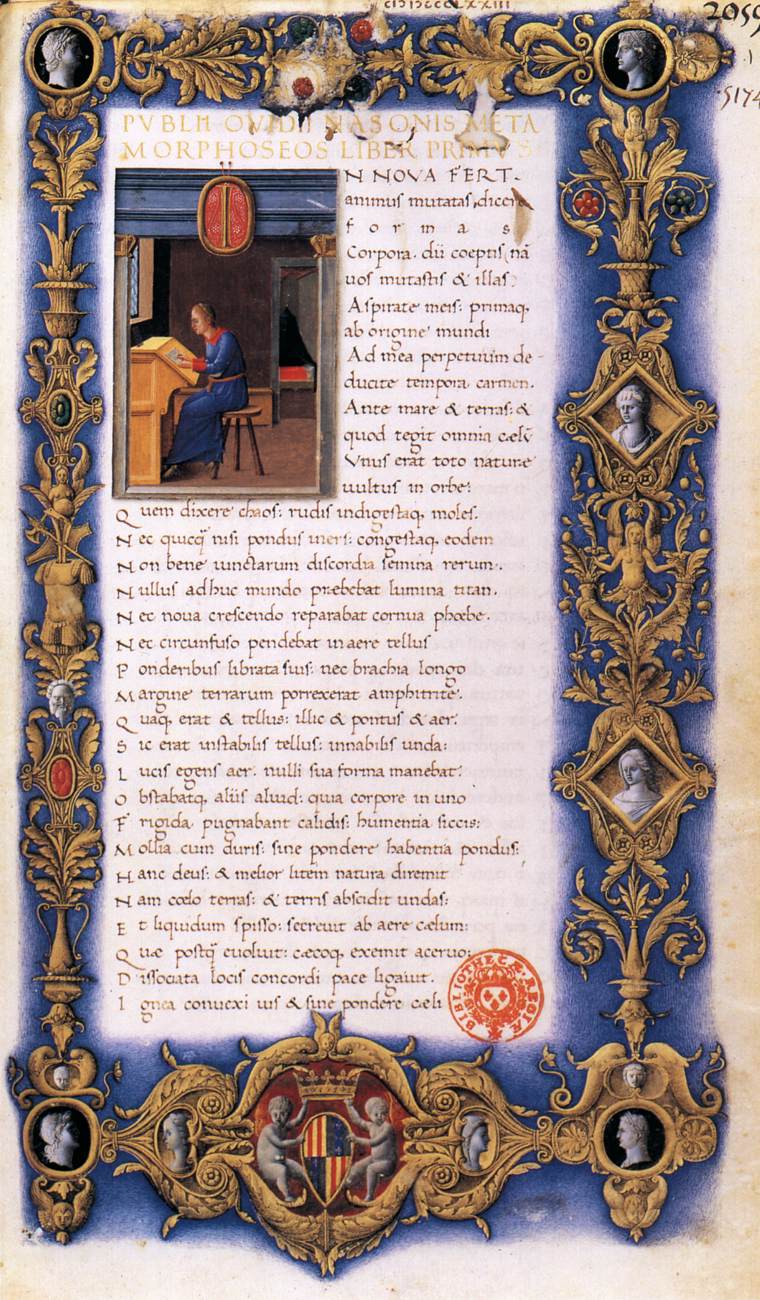 CIƆIƆCCCLXXIII
2059
5174
PVBLII OVIDII NASONIS META
MORPHOSEOS LIBER PRIMVS
I
N NOVA FERT
animus mutatas dicere
formas
Corpora. dii cœptis (nã
uos mutastis & illas)
Aspirate meis: primaq,
ab origine mundi
Ad mea perpetuum de-
ducite tempora carmen.
Ante mare & terras: &
quod tegit omnia cælũ
Vnus erat toto naturæ
uultus in orbe:
Quem dixere chaos: rudis indigestaq, moles.
Nec quicq̃ nisi pondus iners: congestaq, eodem
Non bene iunctarum discordia semina rerum.
Nullus adhuc mundo præbebat lumina titan.
Nec noua crescendo reparabat cornua phœbe.
Nec circunfuso pendebat in aere tellus
Ponderibus librata suis: nec brachia longo
Margine terrarum porrexerat amphitrite.
Quaq, erat & tellus: illic & pontus & aer.
Sic erat instabilis tellus: innabilis unda:
Lucis egens aer. nulli sua forma manebat.
Obstabatq, aliis aliud: quia corpore in uno
Frigida pugnabant calidis: humentia siccis:
Mollia cum duris: sine pondere habentia pondus:
Hanc deus: & melior litem natura diremit
Nam cœlo terras: & terris abscidit undas:
Et liquidum spisso: secreuit ab aere cælum:
Quæ postq̃ euoluit: cæcoq, exemit aceruo:
Dissociata locis concordi pace ligauit.
Ignea conuexi uis & sine pondere cæli
BIBLIOTHECÆ REGIÆ